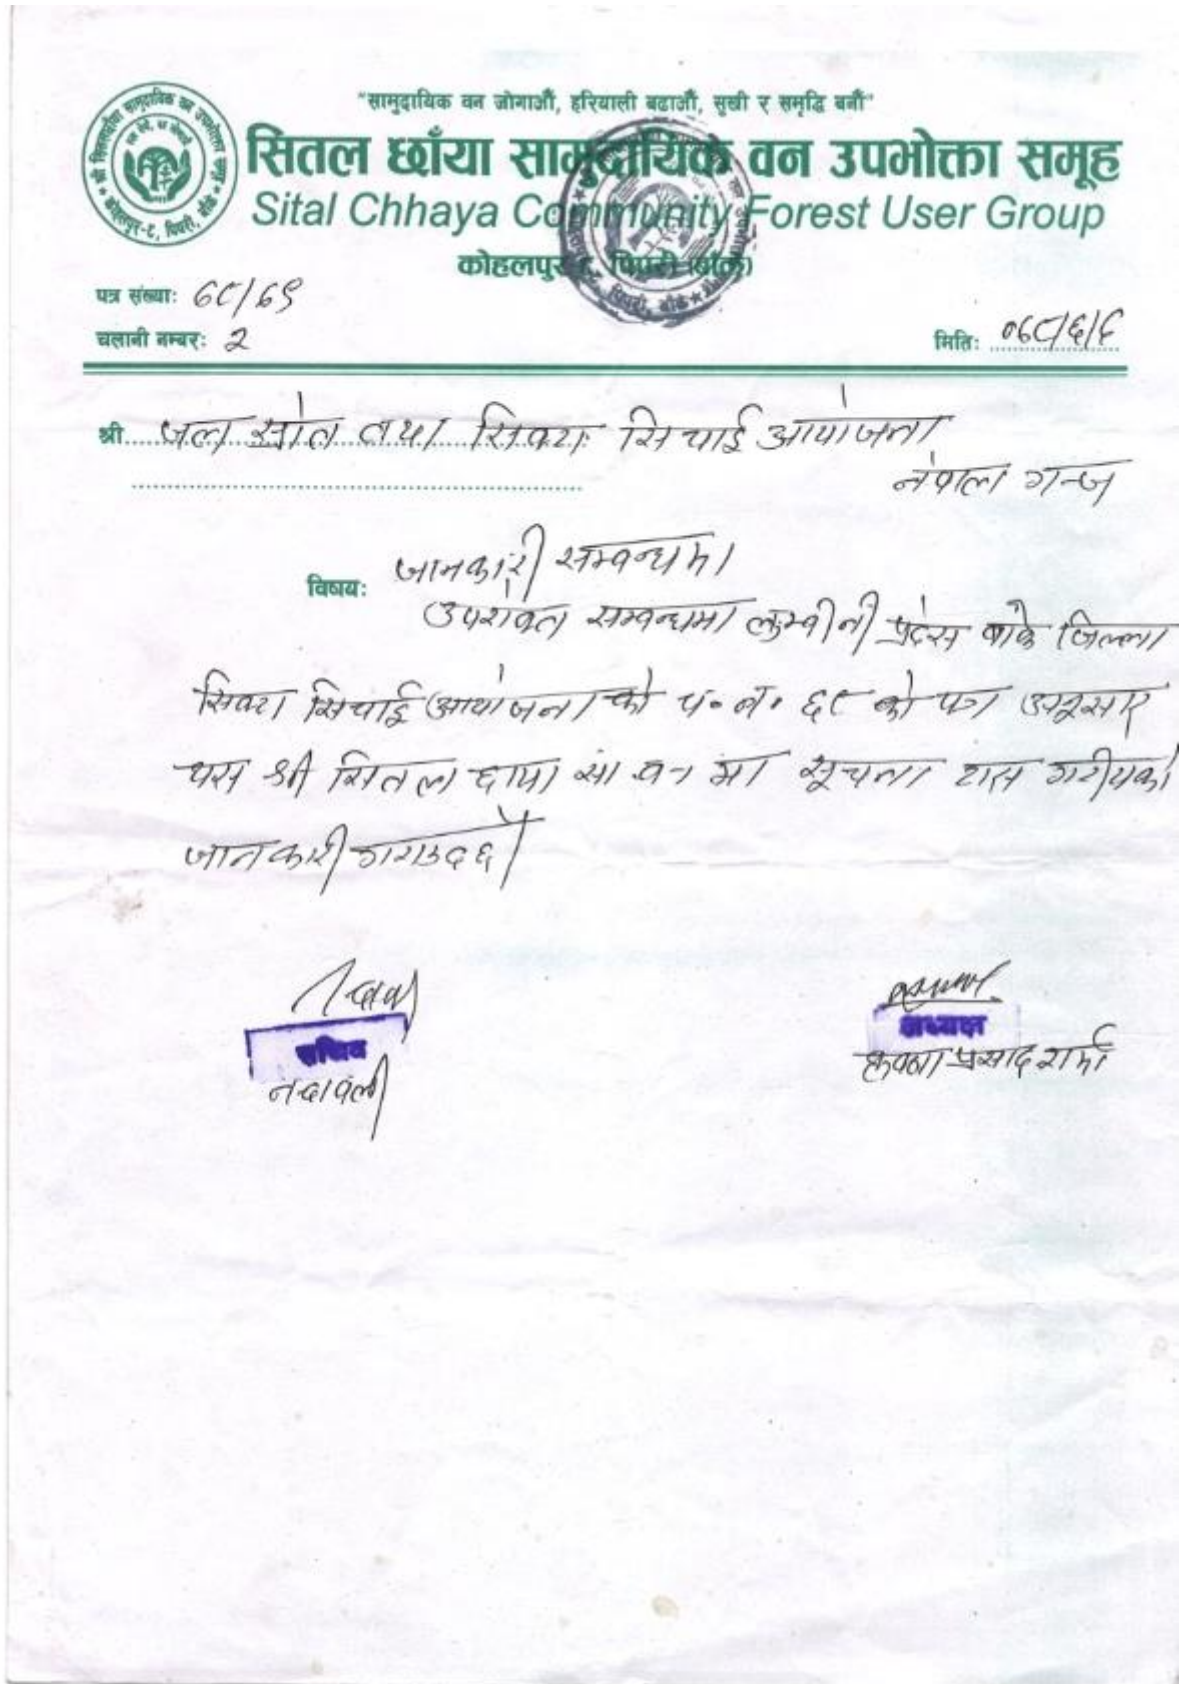 "सामुदायिक वन जोगाऔं, हरियाली बढाऔं, सुखी र समृद्धि बनौं"
सितल छाँया सामुदायिक वन उपभोक्ता समूह
Sital Chhaya Community Forest User Group
कोहलपुर ८, पिपरी (बाँके)
पत्र संख्याः ७८/७९
चलानी नम्बरः २
मितिः ०७८/६/८
श्री जल स्रोत तथा सिक्टा सिचाई आयोजना
नेपाल गन्ज
विषयः जानकारी सम्बन्धमा
उपरोक्त सम्बन्धमा लुम्बीनी प्रदेस बाँके जिल्ला
सिक्टा सिचाई आयोजना को प. न. ६८ को पत्र अनुसार
यस श्री सितल छाया सा व. मा सूचना टास गरीयको
जानकारी गराउदछौ
सचिव
अध्यक्ष
प्रसाद शर्मा